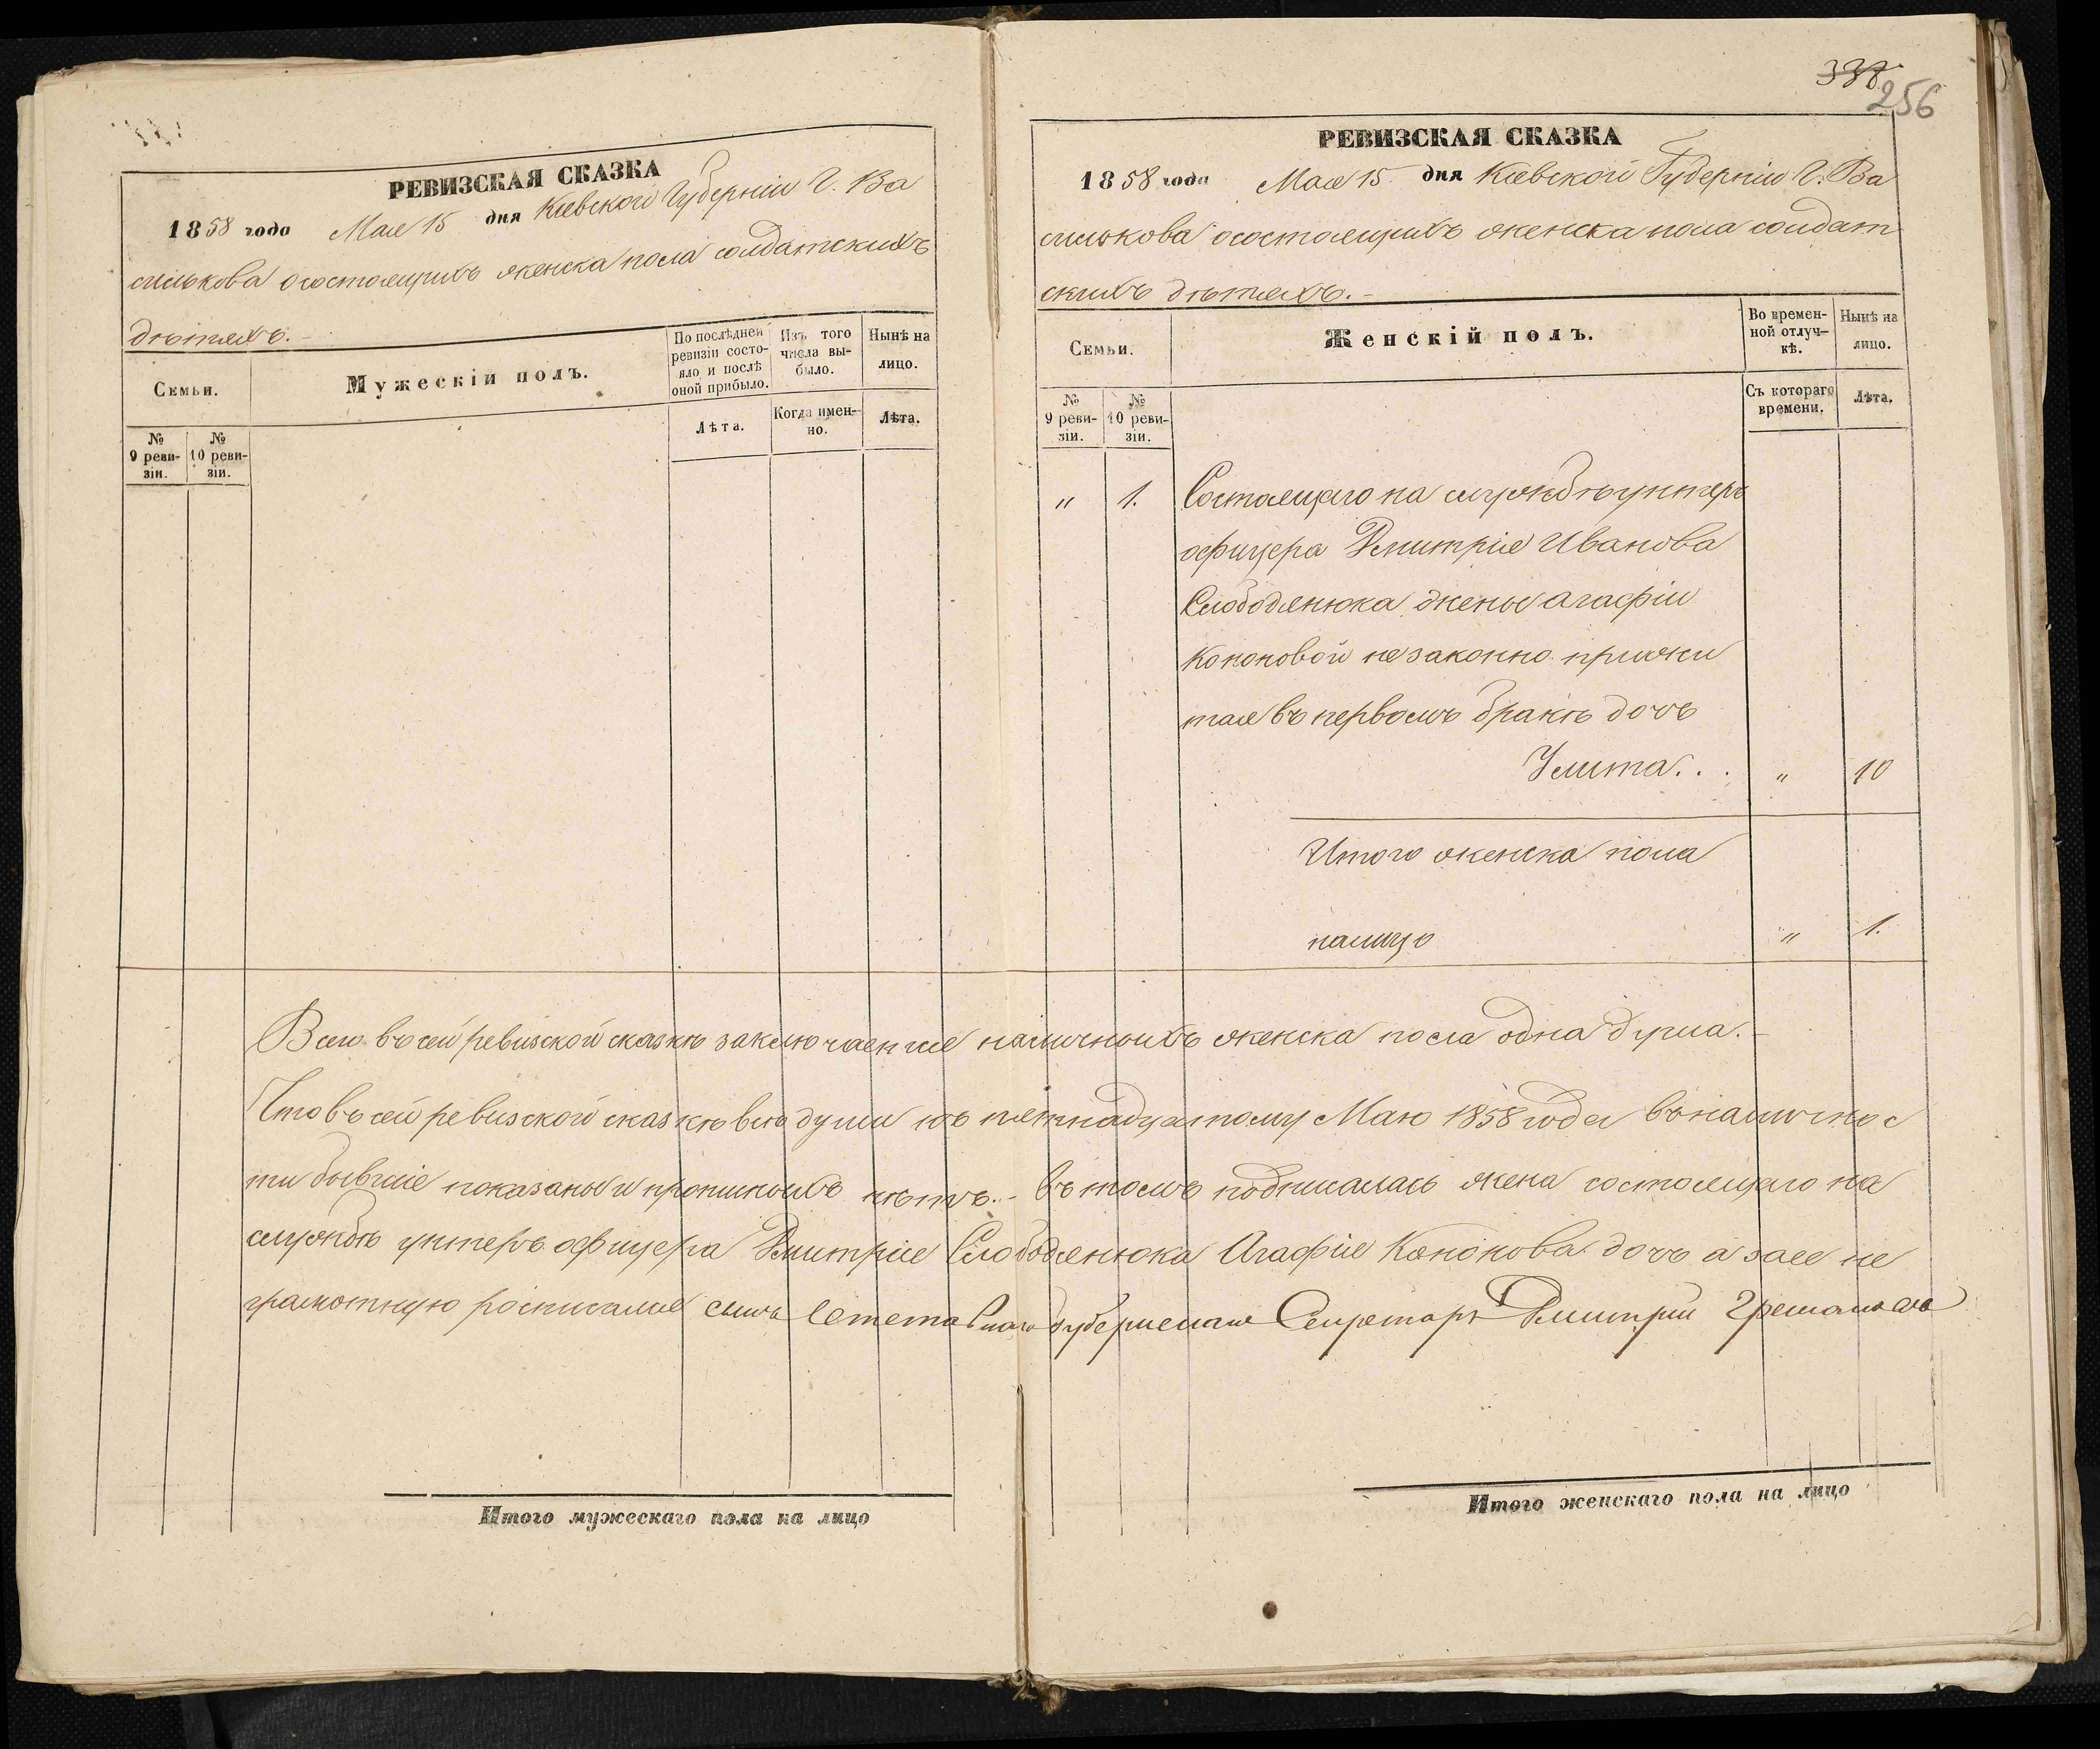 РЕВИЗСКАЯ СКАЗКА
1858 года Мая 15 дня Кіевской Губерніи Г. Ва
силькова о состоящихъ женска пола солдатскихъ
дѣтяхъ.-
Семьи.
Мужескій полъ.
По послѣдней ревизіи состояло и послѣ оной прибыло.
Изъ того числа выбыло.
Нынѣ на лицо.
№ 9 ревизіи.
№ 10 ревизіи.
Лѣта.
Когда именно.
Лѣта.
Итого мужескаго пола на лицо
338.
256
РЕВИЗСКАЯ СКАЗКА
1858 года Мая 15 дня Кіевской Губерніи Г. Ва
силькова о состоящихъ женска пола солдат
скихъ дѣтяхъ.-
Семьи.
Женскій полъ.
Во временной отлучкѣ.
Нынѣ на лицо.
№ 9 ревизіи.
№ 10 ревизіи.
Съ котораго времени.
Лѣта.
" 1. Состоящаго на службѣ унтеръ
офицера Дмитрія Иванова
Слободянюка жены Агафіи
Кононовой незаконно прижи
тая въ первомъ бракѣ дочь
Улита... " 10
Итого женска пола
налицо " 1.
Всего въ сей ревизской сказкѣ заключается наличныхъ женска пола одна душа.-
Что въ сей ревизской сказкѣ всѣ души къ пятнадцатому Маю 1858 года въ наличнос
ти бывшіе показаны и прописныхъ нѣтъ.- въ томъ подписалась жена состоящаго на
службѣ унтеръ офицера Дмитрія Слободянюка Агафія Кононова дочь а за ее не
грамотную росписался Секретарь Дмитрій
Итого женскаго пола на лицо